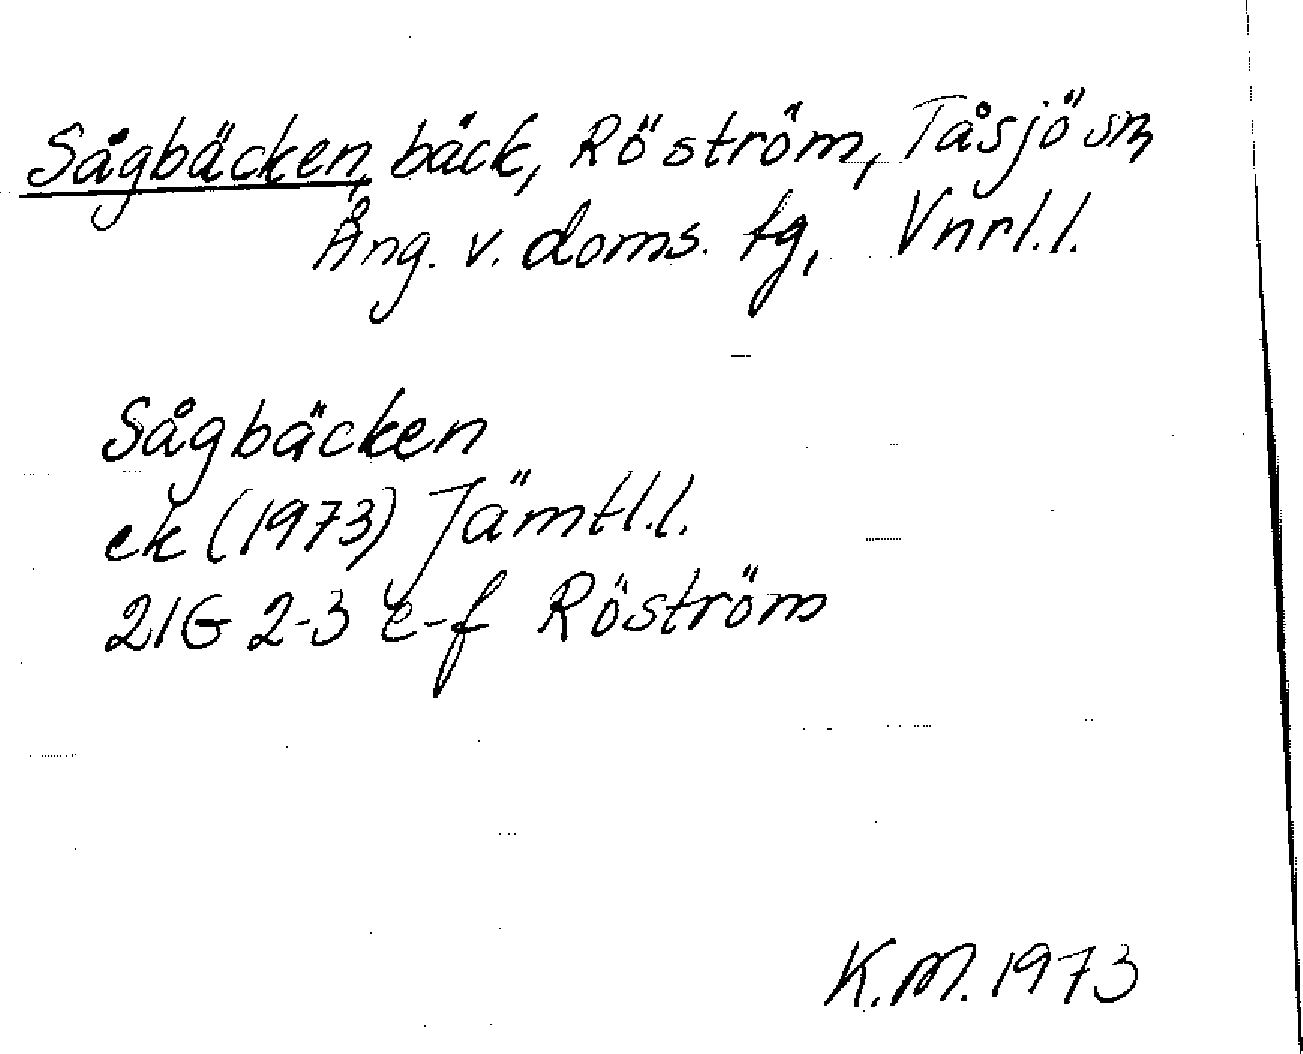 Sågbäcken, bäck, Röström, Tåsjö sn
Ång. v. doms. tg, Vnrl.l.
Sågbäcken
ek (1973) Jämtl.l.
21G 2-3 e-f Röström
K.M. 1973